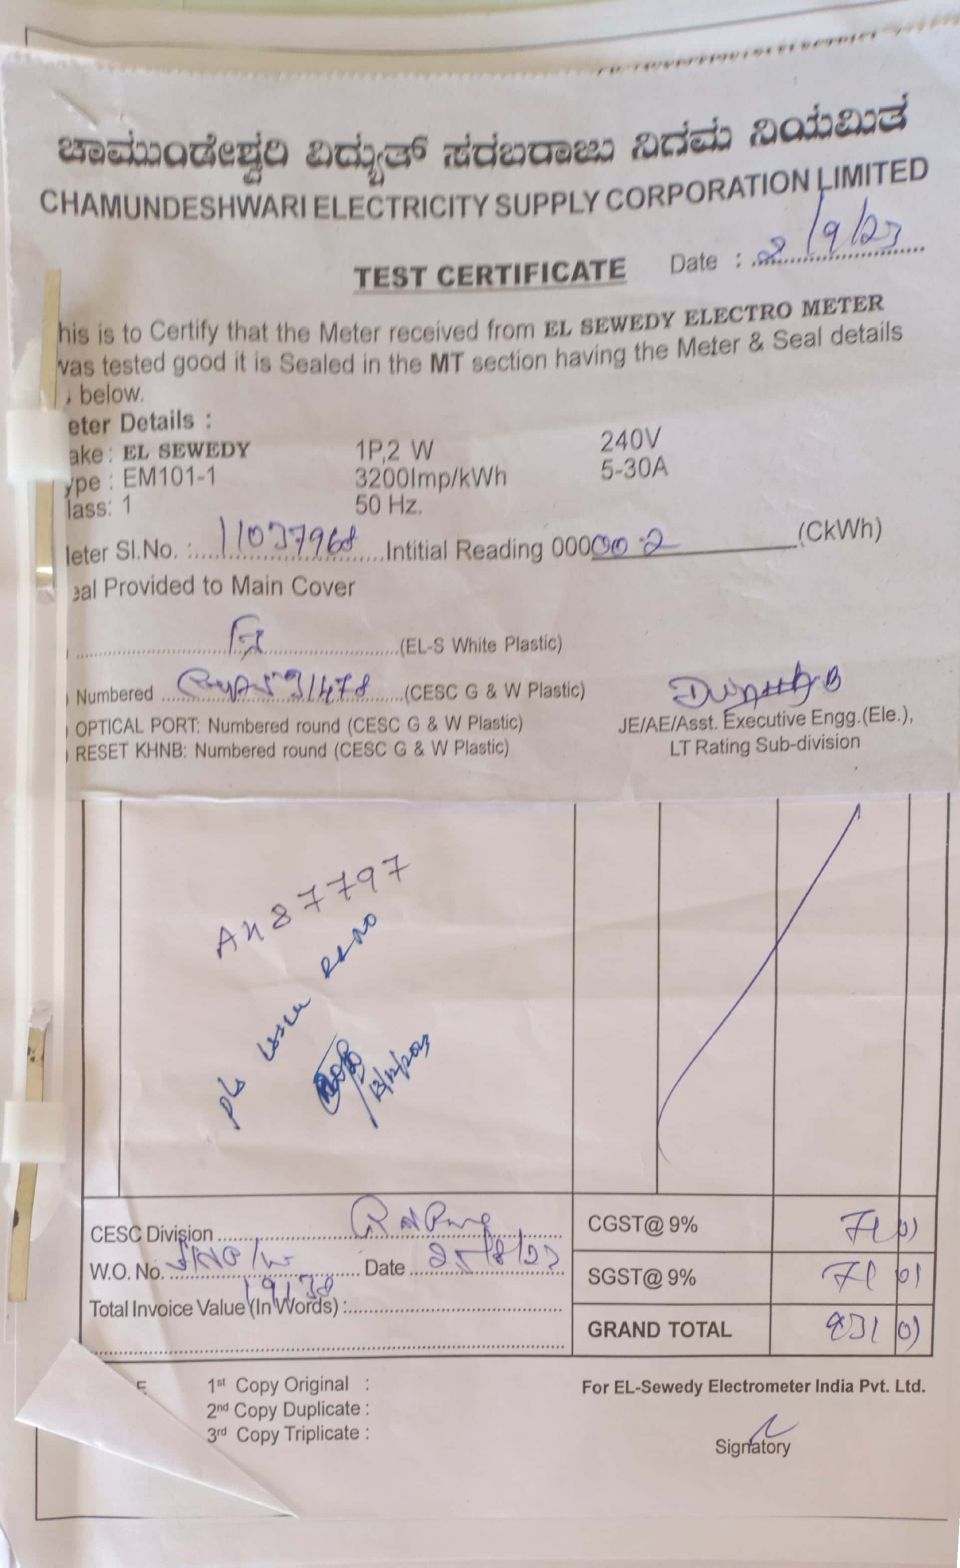 ಚಾಮುಂಡೇಶ್ವರಿ ವಿದ್ಯುತ್ ಸರಬರಾಜು ನಿಗಮ ನಿಯಮಿತ
CHAMUNDESHWARI ELECTRICITY SUPPLY CORPORATION LIMITED
TEST CERTIFICATE Date : 2/9/23
his is to Certify that the Meter received from EL SEWEDY ELECTRO METER
was tested good it is Sealed in the MT section having the Meter & Seal details
below.
eter Details :
ake : EL SEWEDY 1P,2 W 240V
ype : EM101-1 3200Imp/kWh 5-30A
lass: 1 50 Hz.
eter Sl.No. : 11037968 Intitial Reading 00000.2 (CkWh)
eal Provided to Main Cover
(EL-S White Plastic)
Numbered 31478 (CESC G & W Plastic)
OPTICAL PORT: Numbered round (CESC G & W Plastic) JE/AE/Asst. Executive Engg.(Ele.),
RESET KHNB: Numbered round (CESC G & W Plastic) LT Rating Sub-division
87797
RR NO
CESC Division CGST@ 9% 71 01
W.O. No. Date 25/8/23 SGST@ 9% 71 01
Total Invoice Value (In Words) : 19138
GRAND TOTAL 931 01
1st Copy Original : For EL-Sewedy Electrometer India Pvt. Ltd.
2nd Copy Duplicate :
3rd Copy Triplicate :
Signatory